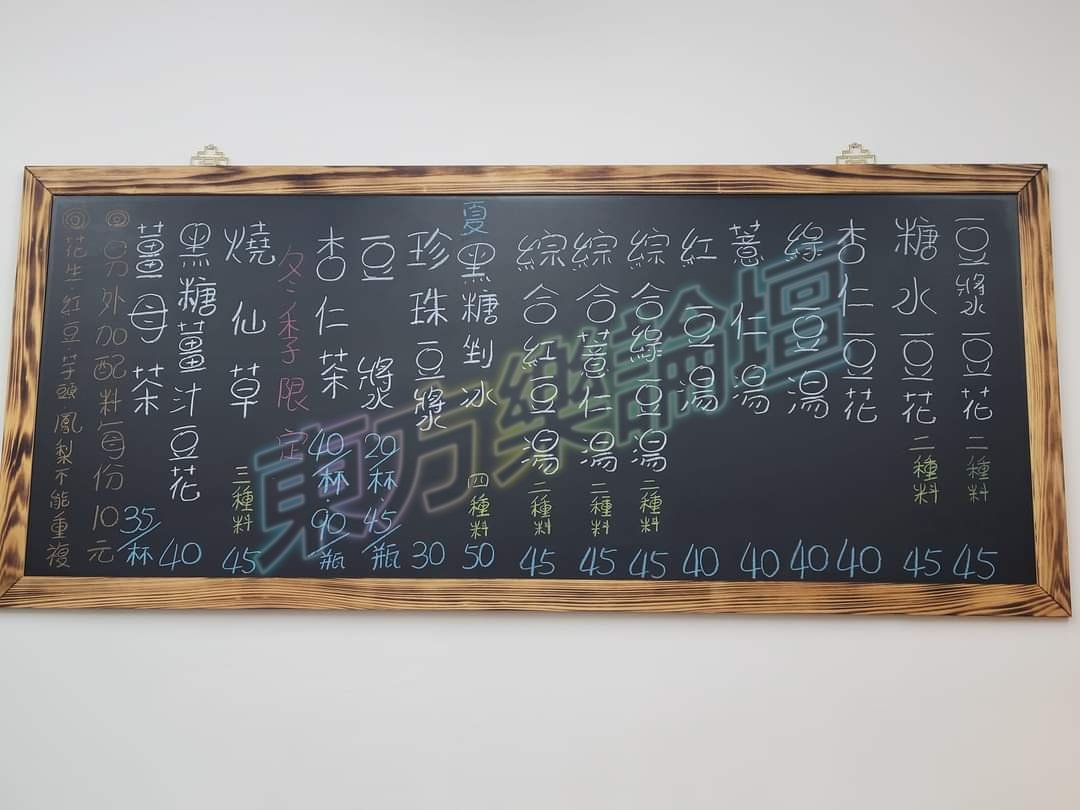 豆漿豆花 二種料 45
糖水豆花 二種料 45
杏仁豆花 40
綠豆湯 40
薏仁湯 40
紅豆湯 40
綜合綠豆湯 二種料 45
綜合薏仁湯 二種料 45
綜合紅豆湯 二種料 45
夏 黑糖剉冰 四種料 50
珍珠豆漿 30
豆漿 20/杯.45/瓶
杏仁茶 40/杯.90/瓶
冬季限定
燒仙草 三種料 45
黑糖薑汁豆花 40
薑母茶 35/杯
◎另外加配料每份10元
◎花生.紅豆芋頭鳳梨不能重複
東方樂論壇